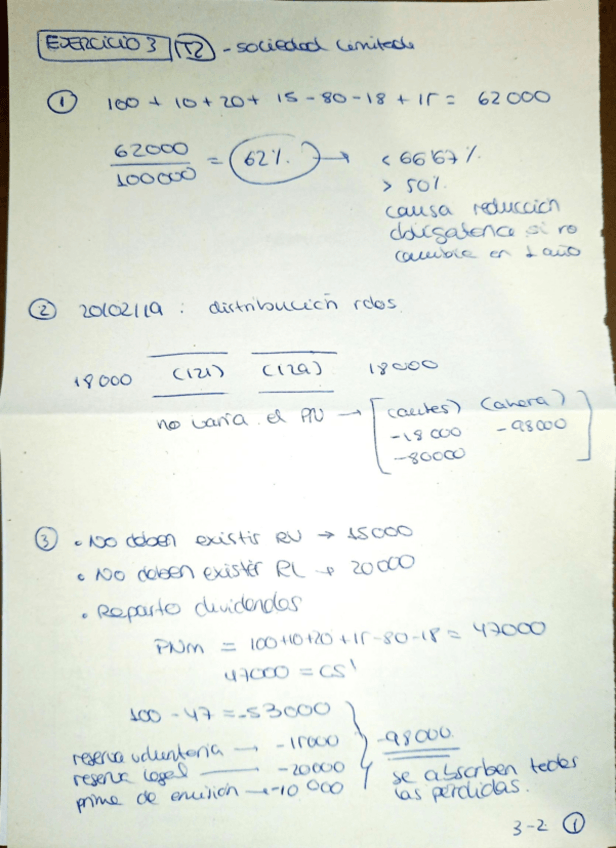 EJERCICIO 3 (T2) - sociedad limitada
① 100 + 10 + 20 + 15 - 80 - 18 + 15 = 62000
62000 / 100000 = 62% → < 66'67%
> 50%
causa reducción
obligatoria si no
cambia en 1 año
② 20/02/19 : distribución rdos.
18000 (121) (129) 18000
no varía el PN → [(antes) (ahora)
-18000 -98000
-80000 ]
③ • No deben existir RV → 15000
• No deben existir RL → 20000
• Reparto dividendos
PNm = 100+10+20+15-80-18 = 47000
47000 = CS'
100 - 47 = -53000
reserva voluntaria → -15000
-98000
reserva legal — -20000
prima de emisión → -10000
se absorben todas
las pérdidas.
3-2 ①